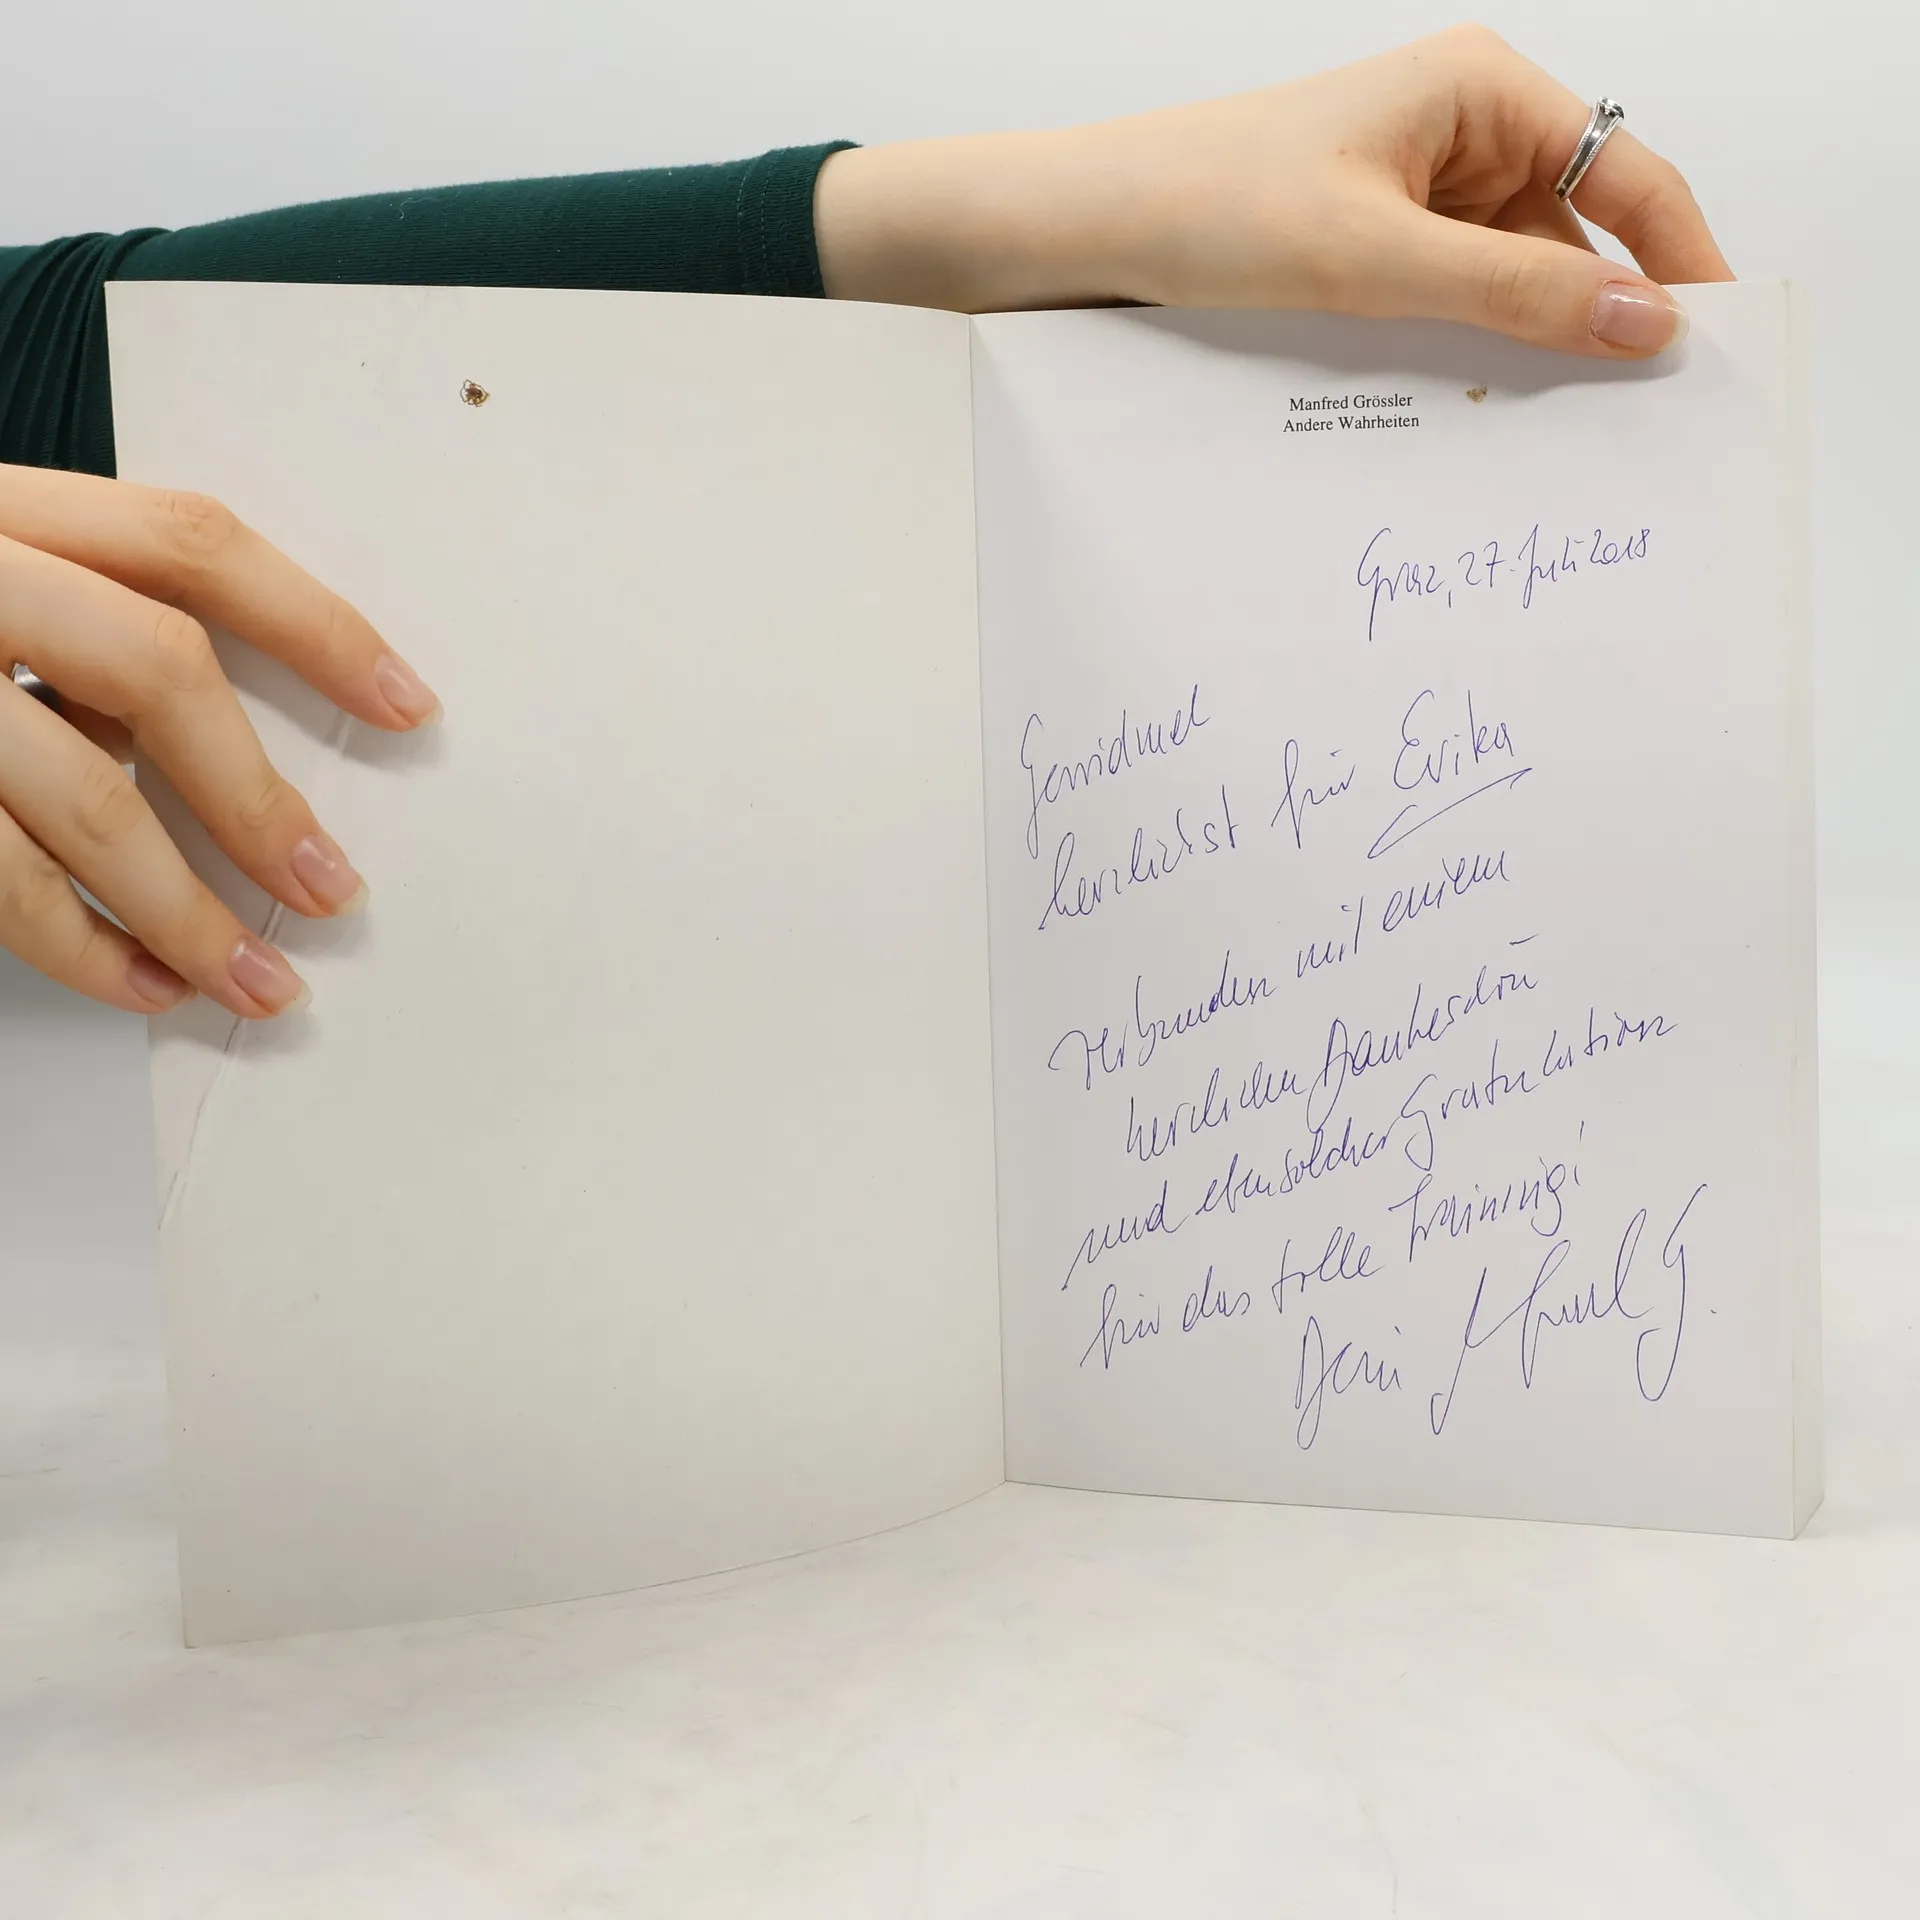 Manfred Grössler
Andere Wahrheiten
Graz, 27. Juli 2018
Gewidmet
herzlichst für Erika
verbunden mit einem
herzlichen Dankeschön
und ebensolcher Gratulation
für das tolle Training!
Dein